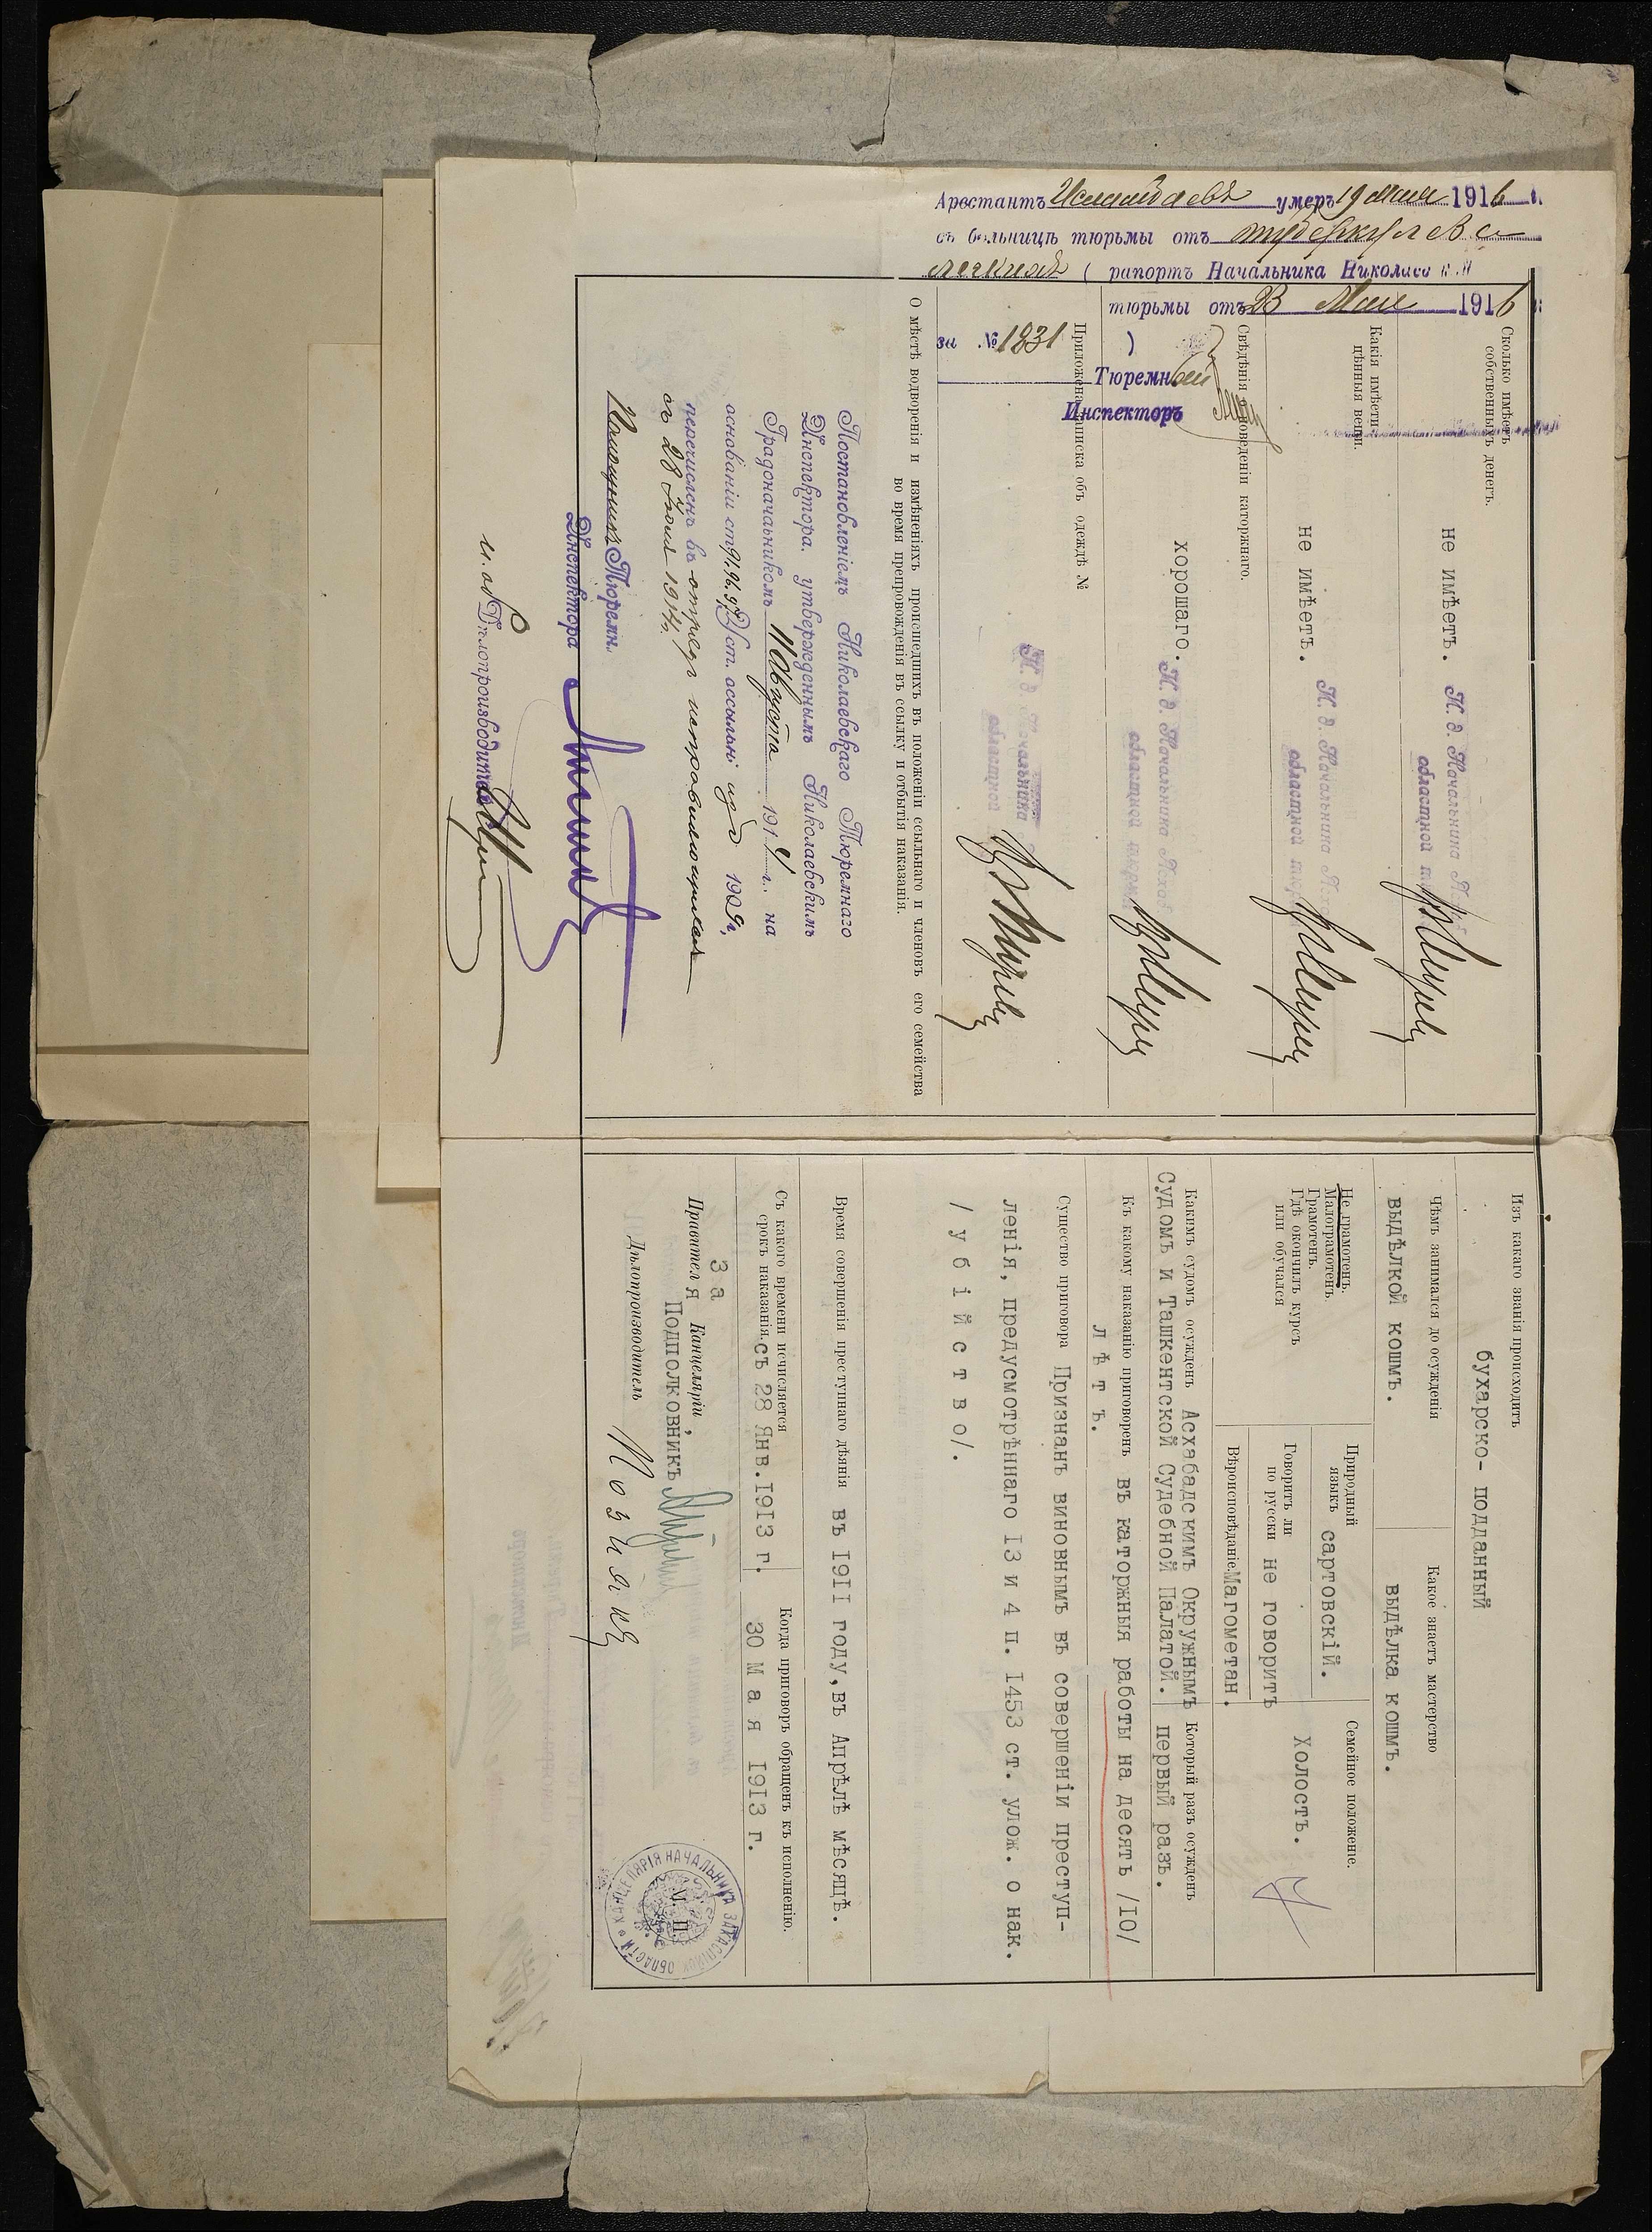 Арестантъ Исламбаевъ умеръ 19 Мая 1916 г.
въ больницѣ тюрьмы отъ туберкулеза
легкихъ ( рапортъ Начальника Николаев
тюрьмы отъ 23 Мая 1916
за № 1831 )
Тюремный
Инспекторъ
Сколько имѣетъ
собственныхъ денегъ.
не имѣетъ.
И. д. Начальника Асхаб
областной тюрьмы
Какія имѣетъ
цѣнныя вещи.
не имѣетъ.
И. д. Начальника Асхаб
областной тюрьмы
Свѣдѣнія о поведеніи каторжнаго.
хорошаго.
И. д. Начальника Асхаб
областной тюрьмы
Приложена записка об одеждѣ №
И. д. Начальника
областной
О мѣстѣ водворенія и измѣненіяхъ происшедшихъ въ положеніи ссыльнаго и членовъ его семейства
во время препровожденія въ ссылку и отбытія наказанія.
Постановленіемъ Николаевскаго Тюремнаго
Инспектора. утвержденнымъ Николаевскимъ
Градоначальникомъ 11 Августа 1914 г.. на
основаніи ст 91.96.97 Уст. ссыльн: изд 1909 г,
перечисленъ въ отрядъ исправляющихся
съ 28 Іюля 1914 г.
Помощникъ Тюремн.
Инспектора
и. об Дѣлопроизводителя
Изъ какаго званія происходитъ
бухарско- подданный
Чѣмъ занимался до осужденія
выдѣлкой кошмъ.
Какое знаетъ мастерство
выдѣлка кошмъ.
Не грамотенъ.
Малограмотенъ.
Грамотенъ.
Гдѣ окончилъ курсъ
или обучался
Природный
языкъ сартовскій.
Говоритъ ли
по русски не говоритъ
Вѣроисповѣданіе. Магометан.
Семейное положеніе.
Холостъ.
Какимъ судомъ осужденъ Асхабадскимъ Окружнымъ
Судомъ и Ташкентской Судебной Палатой.
Который разъ осужденъ
первый разъ.
Къ какому наказанію приговоренъ въ каторжныя работы на десять /I0/
лѣтъ.
Существо приговора Признанъ виновнымъ въ совершеніи преступ-
ленія, предусмотрѣннаго I3 и 4 п. I453 ст. улож. о нак.
/убійство/.
Время совершенія преступнаго дѣянія въ I9II году, въ Апрѣлѣ мѣсяцѣ.
Съ какого времени исчисляется
срокъ наказанія. съ 28 Янв. I9I3 г.
Когда приговоръ обращенъ къ исполненію.
30 Мая I9I3 г.
За
Правителя Канцеляріи,
Подполковникъ
Дѣлопроизводитель
КАНЦЕЛЯРІЯ НАЧАЛЬНИКА ЗАКАСПІЙСК ОБЛАСТИ
М. П.